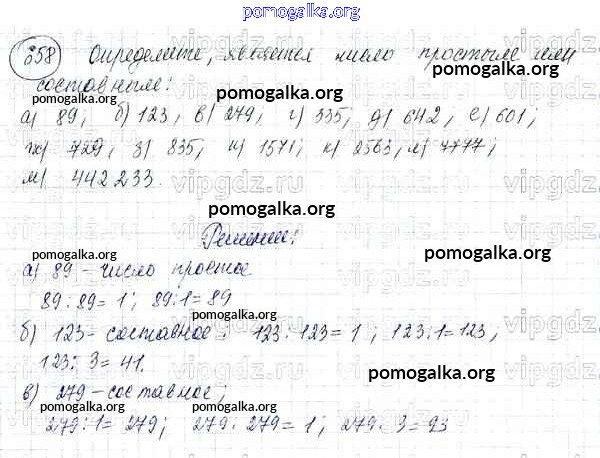 pomogalka.org
658 Определите, является число простым или
составным: pomogalka.org
а) 89; б) 123, в) 279; г) 335; д) 642, е) 601;
ж) 729, з) 835, и) 1571; к) 2563, л) 7777;
м) 442 233. vipgdz.ru pomogalka.org
pomogalka.org
Решение: pomogalka.org
а) 89 - число простое
pomogalka.org
89 : 89 = 1; 89 : 1 = 89
vipgdz.ru
б) 123 - составное; 123 : 123 = 1; 123 : 1 = 123,
123 : 3 = 41. pomogalka.org
в) 279 - составное;
pomogalka.org pomogalka.org
279 : 1 = 279; 279 : 279 = 1; 279 : 3 = 93